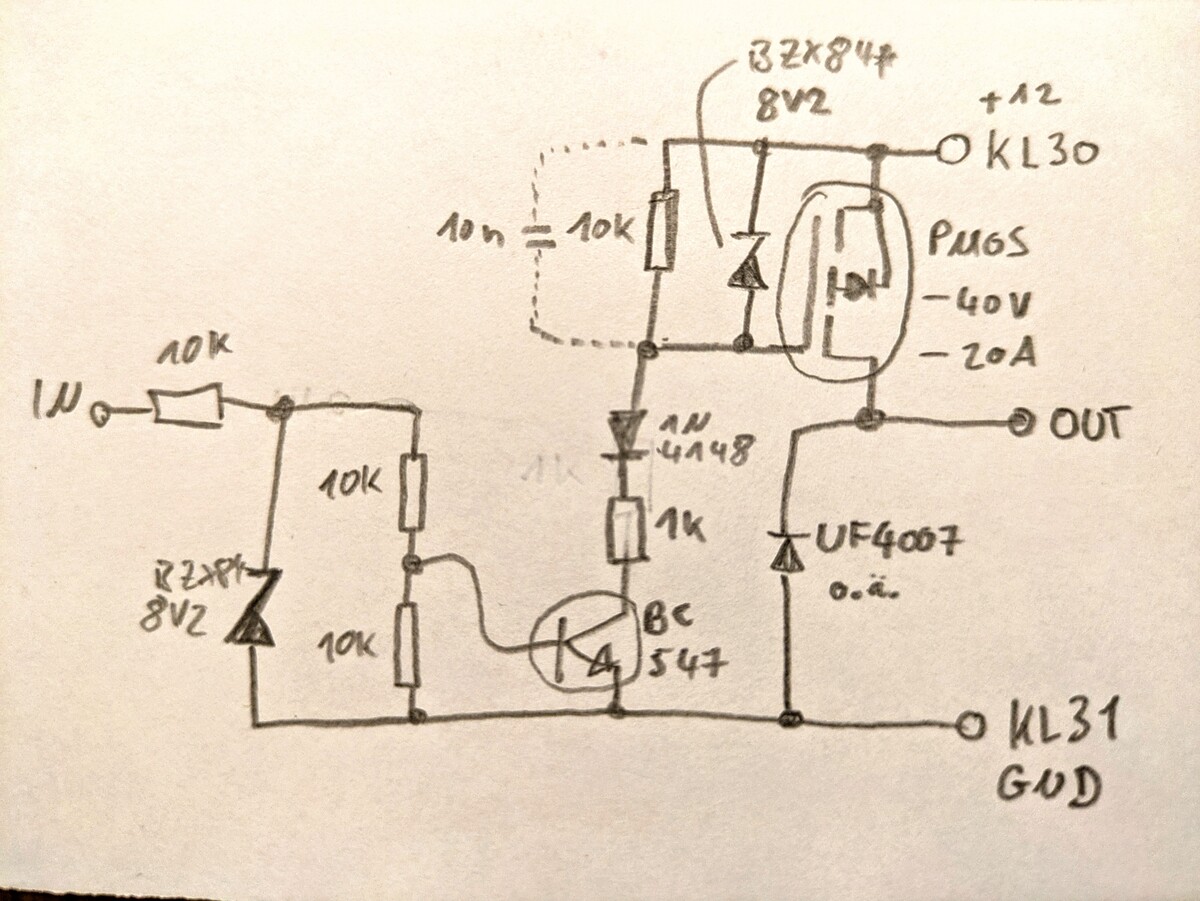 BZX84
8V2
+12
KL30
10n
10k
PMOS
-40V
-20A
10k
IN
1N
4148
OUT
10k
1k
UF4007
o.ä.
BZX84
8V2
10k
BC
547
KL31
GND